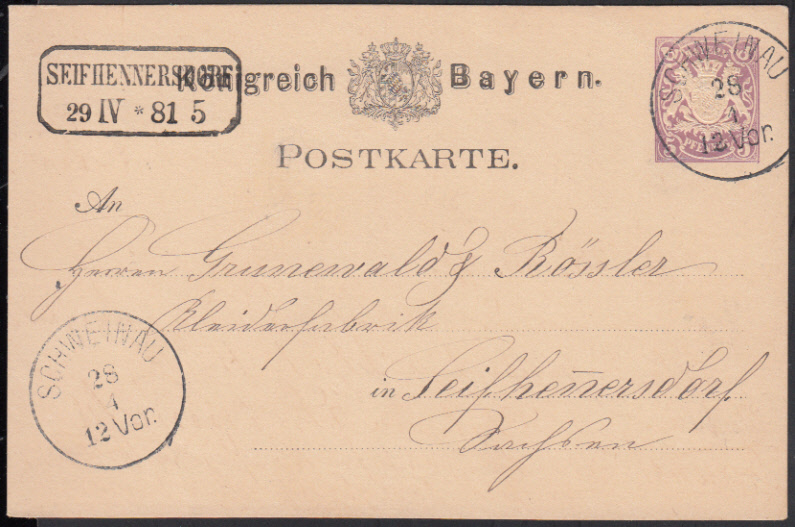 SEIFHENNERSDORF
29 IV * 81 5
Königreich Bayern.
SCHWEINAU
28
4
12 Vor.
PFENNIG
POSTKARTE.
An
Herren Grunewald & Rössler
Kleiderfabrik
in Seifhen̄ersdorf
Sachsen
SCHWEINAU
28
4
12 Vor.